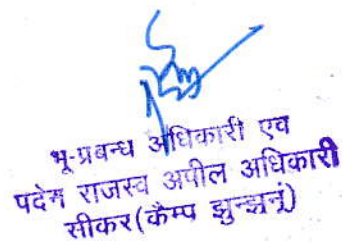 भू-प्रबन्ध अधिकारी एव
पदेन राजस्व अपील अधिकारी
सीकर(कैम्प झुन्झनूं)